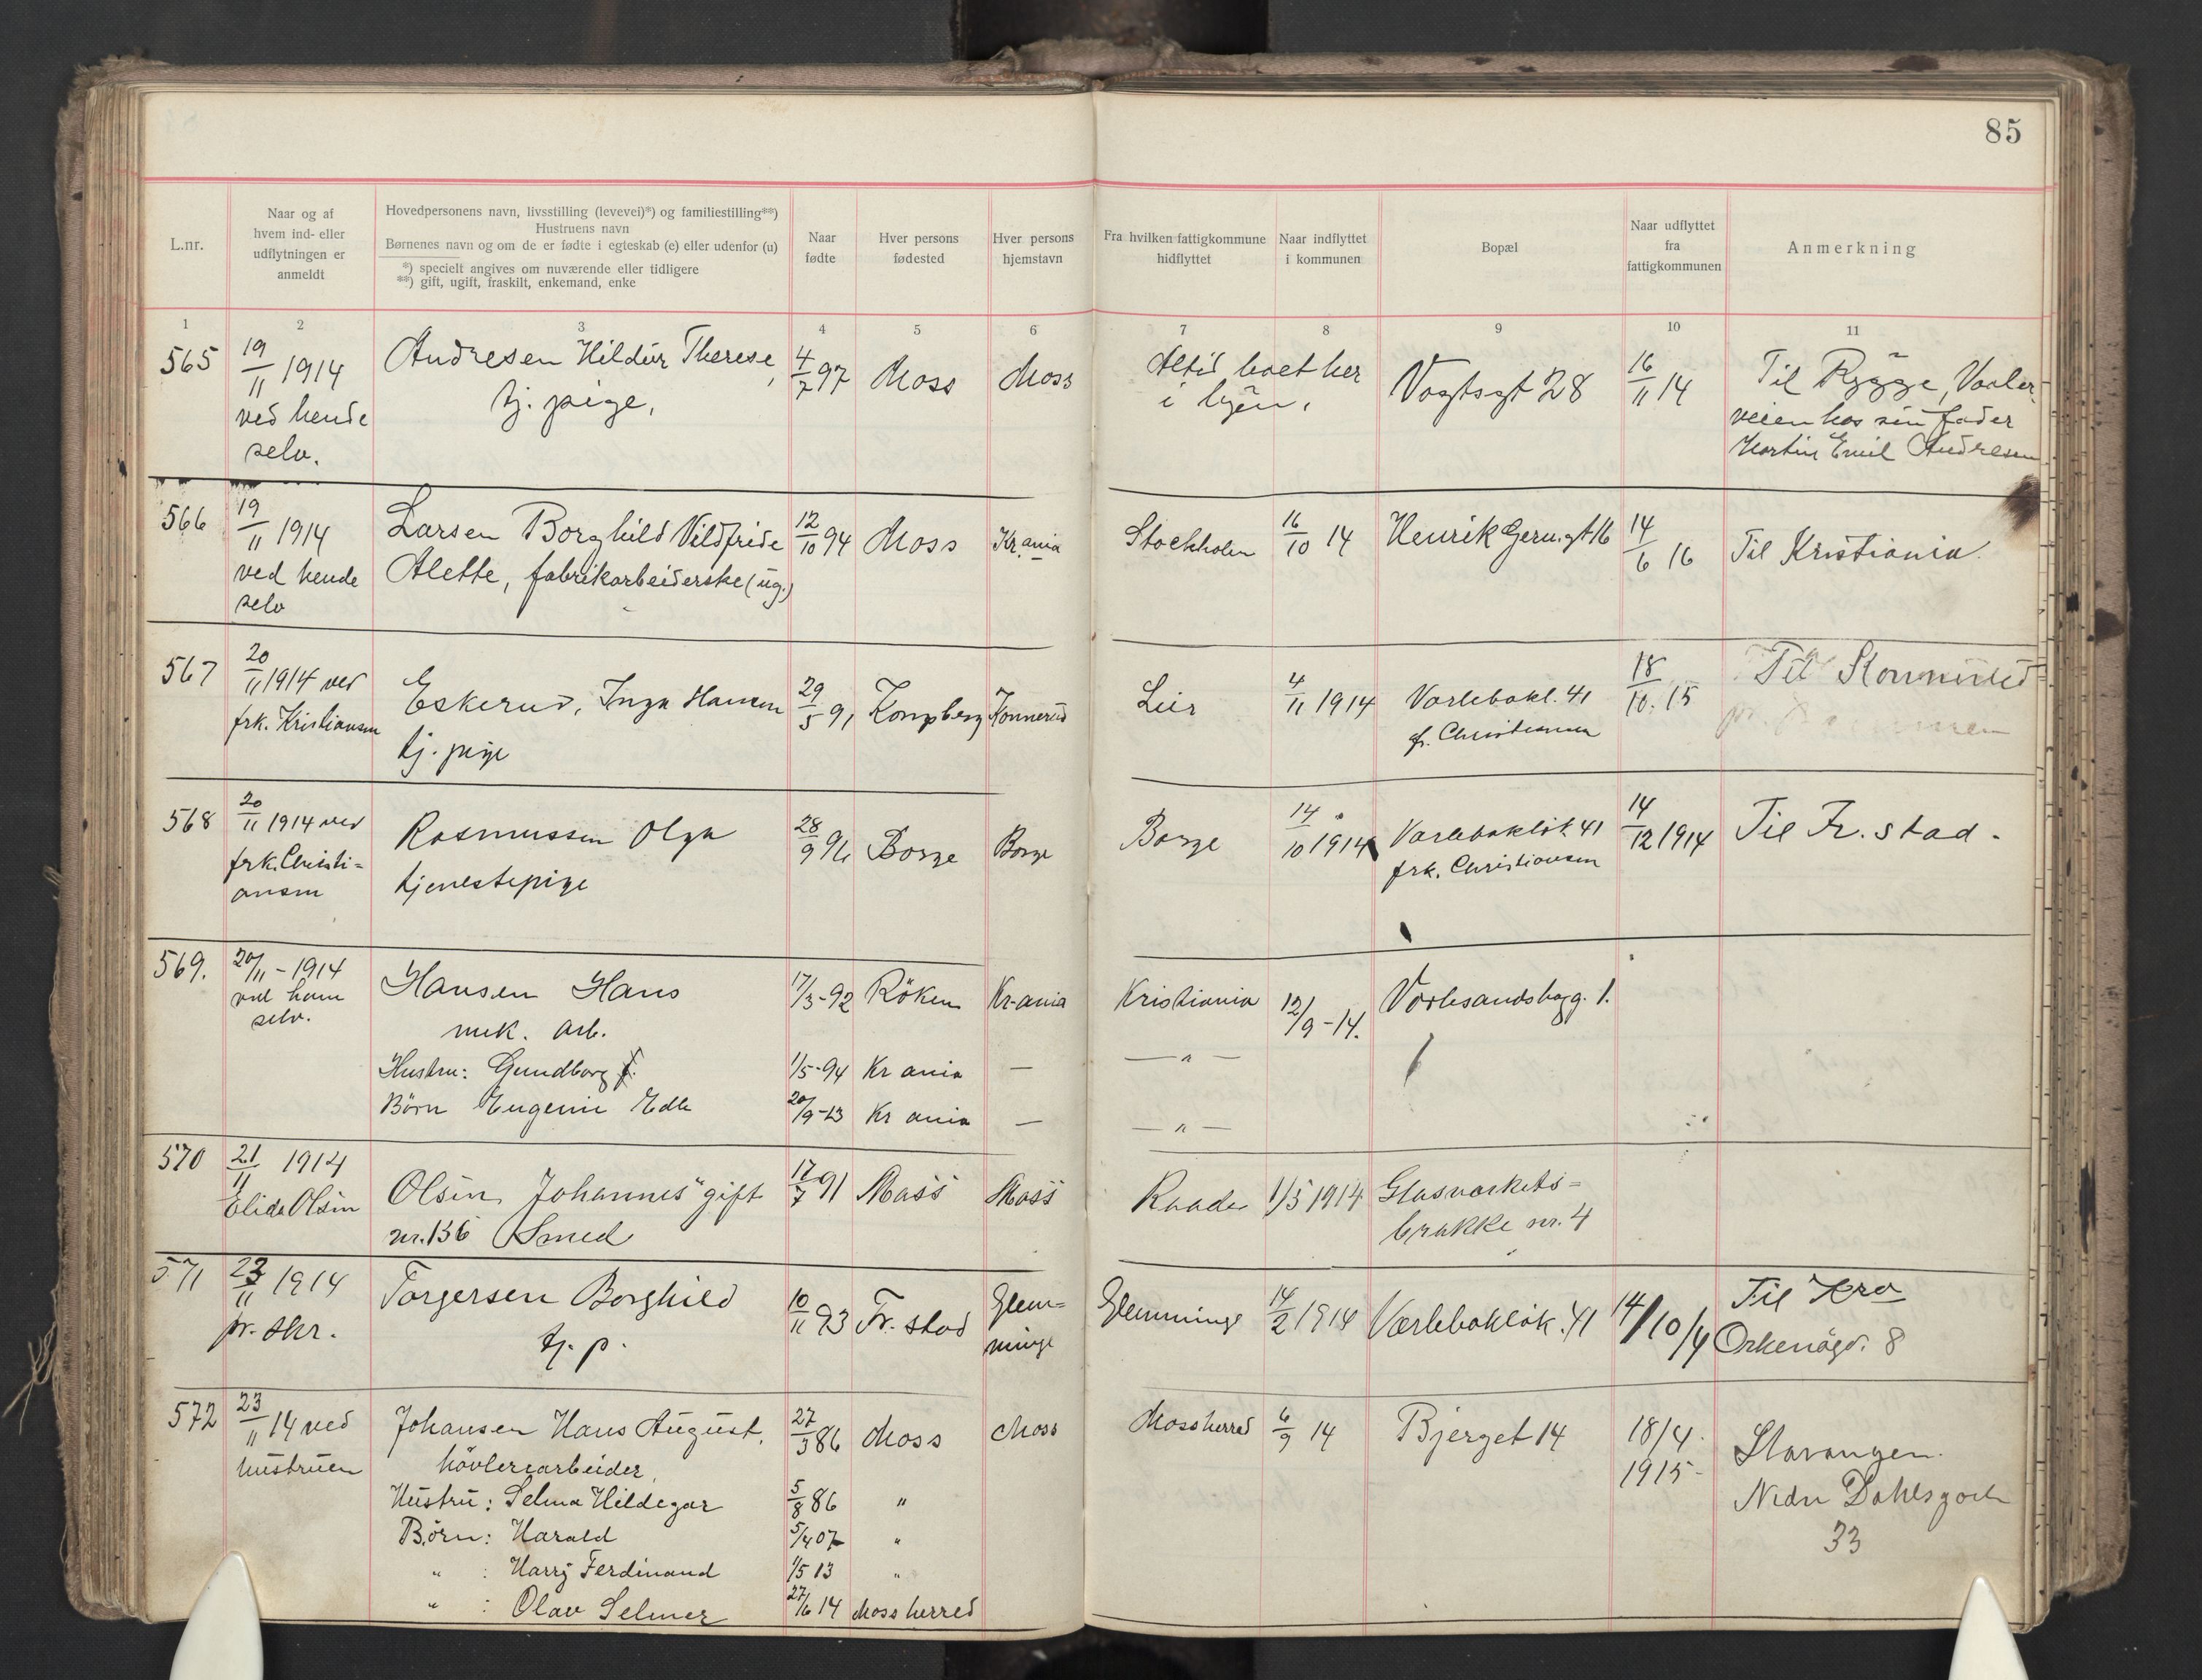 85
L.nr.
Naar og af
hvem ind- eller
udflytningen er
anmeldt
Hovedpersonens navn, livsstilling (levevei)*) og familiestilling**)
Hustruens navn
Børnenes navn og om de er fødte i egteskab (e) eller udenfor (u)
*) specielt angives om nuværende eller tidligere
**) gift, ugift, fraskilt, enkemand, enke
Naar
fødte
Hver persons
fødested
Hver persons
hjemstavn
Fra hvilken fattigkommune
hidflyttet
Naar indflyttet
i kommunen
Bopæl
Naar udflyttet
fra
fattigkommunen
Anmerkning
1 2 3 4 5 6 7 8 9 10 11
565
19/11 1914
ved hende
selv.
Andresen Hildur Therese,
tj. pige,
4/7 97
Moss
Moss
Altid boet her
i byen,
Vogtsgt 28
16/11 14
Til Rygge, Vaaler
veien hos sin fader
Martin Emil Andresen
566
19/11 1914
ved hende
selv
Larsen Borghild Vildfride
Alette, fabrikarbeiderske (ug.)
12/10 94
Moss
Kr.ania
Stockholm
16/10 14
Henrik Gern.gt 16
14/6 16
Til Kristiania.
567
20/11 1914 ved
frk. Kristiansen
Eskerud, Inga Hansen
tj. pige
29/5 91
Kongsberg
Konnerud
Lier
4/11 1914
Varlebakl. 41
fr. Christiansen
18/10. 15
Til Konnerud
568
20/11 1914 ved
frk. Christi=
ansen
Rasmussen Olga
tjenestepige
28/9 96
Borge
Borge
Borge
14/10 1914
Varlebakløk. 41
frk. Christiansen
14/12 1914
Til Fr. stad.
569.
20/11 - 1914
ved ham
selv.
Hansen Hans
mek. arb.
17/3-92
Röken
Kr-ania
Kristiania
12/9 - 14.
Varlesandsbagg. 1.
Hustru: Gundborg
1/5-94
Kr ania
—
— " —
Børn Eugenie Edle
20/9-13
Kr ania
—
— " —
570
21/11 1914
Elida Olsen
Olsen, Johannes gift
nr. 136 Smed
17/7 91
Moss
Moss
Raade
1/5 1914
Glasværkets=
brakke nr. 4
571
23/11 1914
pr. skr.
Torgersen Borghild
tj. p.
10/11 93
Fr. stad
Glem=
minge
Glemminge
14/2 1914
Værlebakløk. 41
14/10/4
Til Kra
Orkenögd. 8
572
23/11 14 ved
hustruen
Johansen Hans August,
hövleriarbeider,
27/3 86
Moss
Moss
Moss herred
6/9 14
Bjerget 14
18/4.
1915-
Stavanger.
Nedre Dahlsgade
33
Hustru: Selma Hildegar
5/8 86
"
Børn: Harald
5/4 07
"
" : Harry Ferdinand
1/5 13
"
" : Olav Selmer
27/6 14
Moss herred